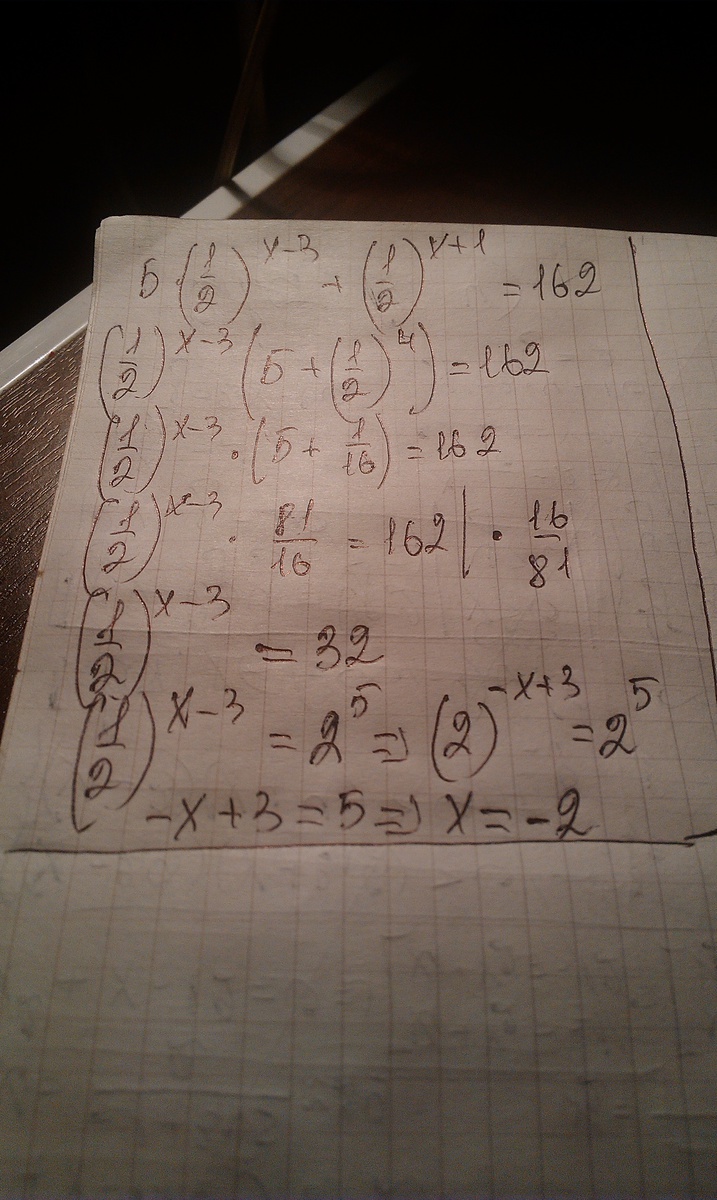 5 · (1/2)^(x-3) + (1/2)^(x+1) = 162
(1/2)^(x-3) (5 + (1/2)^4) = 162
(1/2)^(x-3) · (5 + 1/16) = 162
(1/2)^(x-3) · 81/16 = 162 | · 16/81
(1/2)^(x-3) = 32
(1/2)^(x-3) = 2^5 => (2)^(-x+3) = 2^5
-x+3 = 5 => x = -2